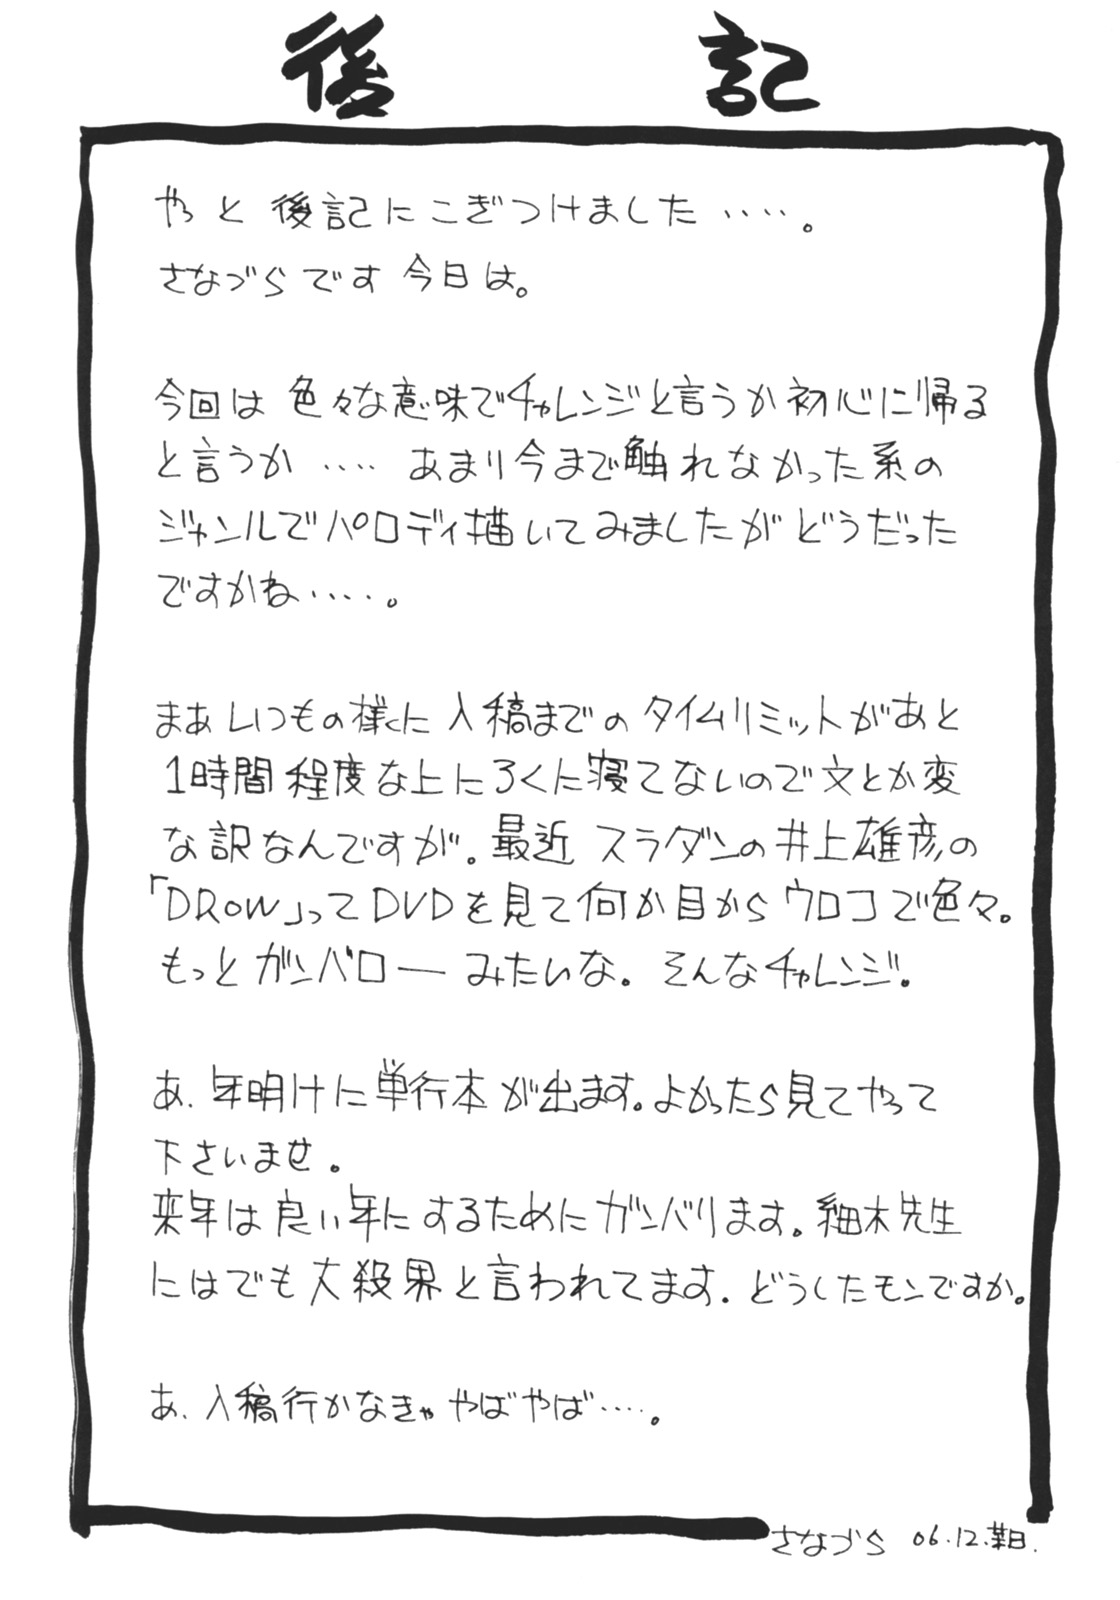 後記
やっと 後記にこぎつけました‥‥。
さなづらです 今日は。
今回は 色々な意味でチャレンジと言うか初心に帰る
と言うか‥‥ あまり今まで触れなかった系の
ジャンルでパロディ描いてみましたがどうだった
ですかね‥‥。
まあ いつもの様に 入稿までの タイムリミットがあと
1時間程度な上にろくに寝てないので文とか変
な訳なんですが。最近 スラダンの井上雄彦の
「DROW」ってDVDを見て何か目からウロコで色々。
もっとガンバローみたいな。そんなチャレンジ。
あ、年明けに単行本が出ます。よかったら見てやって
下さいませ。
来年は良い年にするためにガンバります。細木先生
にはでも大殺界と言われてます。どうしたモンですか。
あ、入稿行かなきゃ やばやば‥‥。
さなづら 06.12.某日.